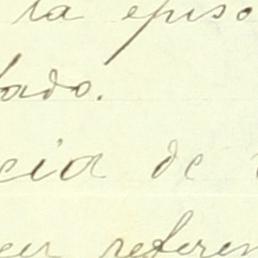 la episo
tado.
cia de
referen